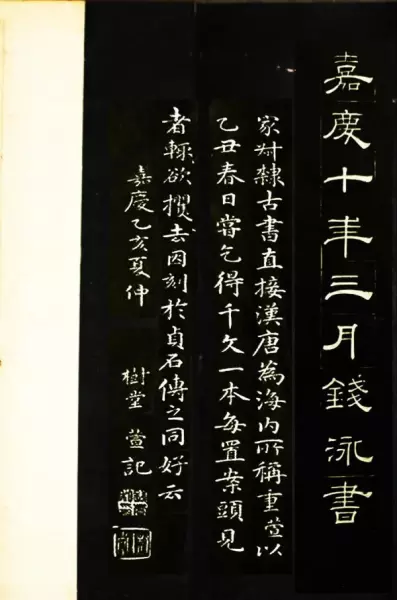 嘉慶十年三月錢泳書
家尗隸古書直接漢唐為海內所稱重萱以
乙丑春日嘗乞得千文一本每置案頭見
者輒欲攫去因刻於貞石傳之同好云
嘉慶乙亥夏仲
樹堂萱記